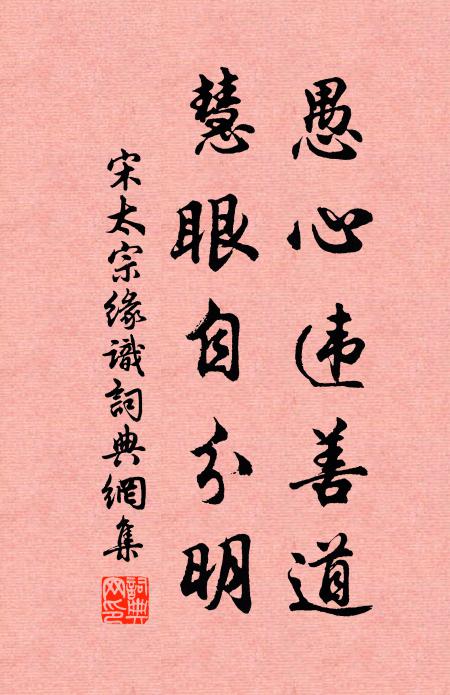 愚心违善道
慧眼自分明
宋太宗缘識詞典網集
詞典网印